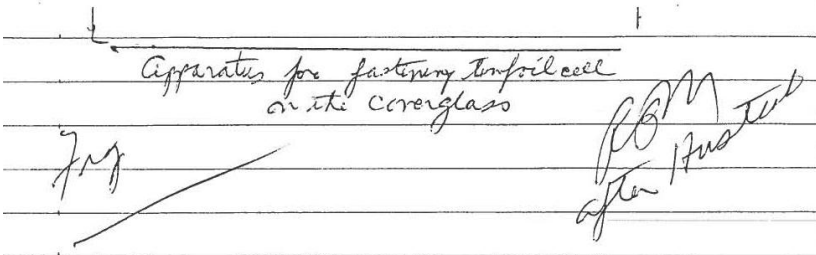 Apparatus for fastening tinfoil cell
on the Coverglass
Fig
after